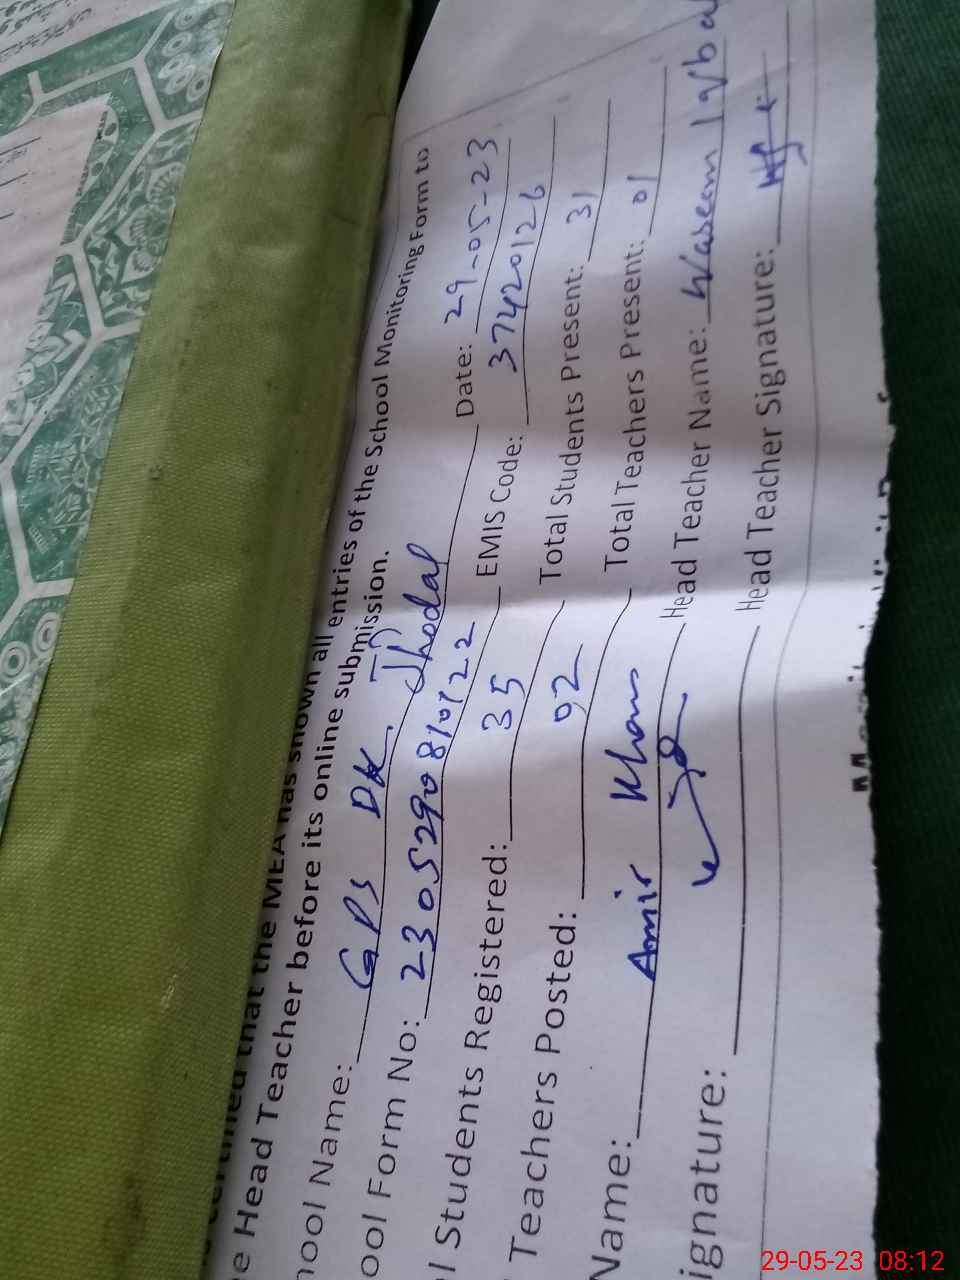 certified that the MEA has shown all entries of the School Monitoring Form to
e Head Teacher before its online submission.
hool Name: GPS DK. Jhodal Date: 29-05-23
ool Form No: 2305290810122 EMIS Code: 37420126
l Students Registered: 35 Total Students Present: 31
Teachers Posted: 02 Total Teachers Present: 01
Name: Amir Khan Head Teacher Name: Waseem Iqbal
ignature: Head Teacher Signature:
29-05-23 08:12